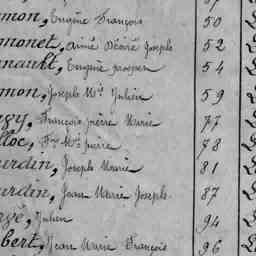 mon, Eugène François 50
monet, Aimé Désiré Joseph 52
nault, Eugène prosper 54
mon, Joseph Mie Julien 59
gy, François pierre Marie 77
lloc, Fois Mie pierre 78
urdin, Joseph Marie 81
urdin, Jean Marie Joseph 87
rvé, Julien 94
bert, Jean Marie François 96